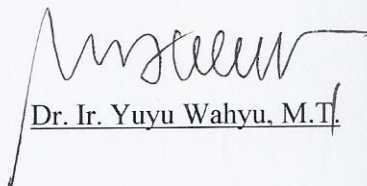 Dr. Ir. Yuyu Wahyu, M.T.